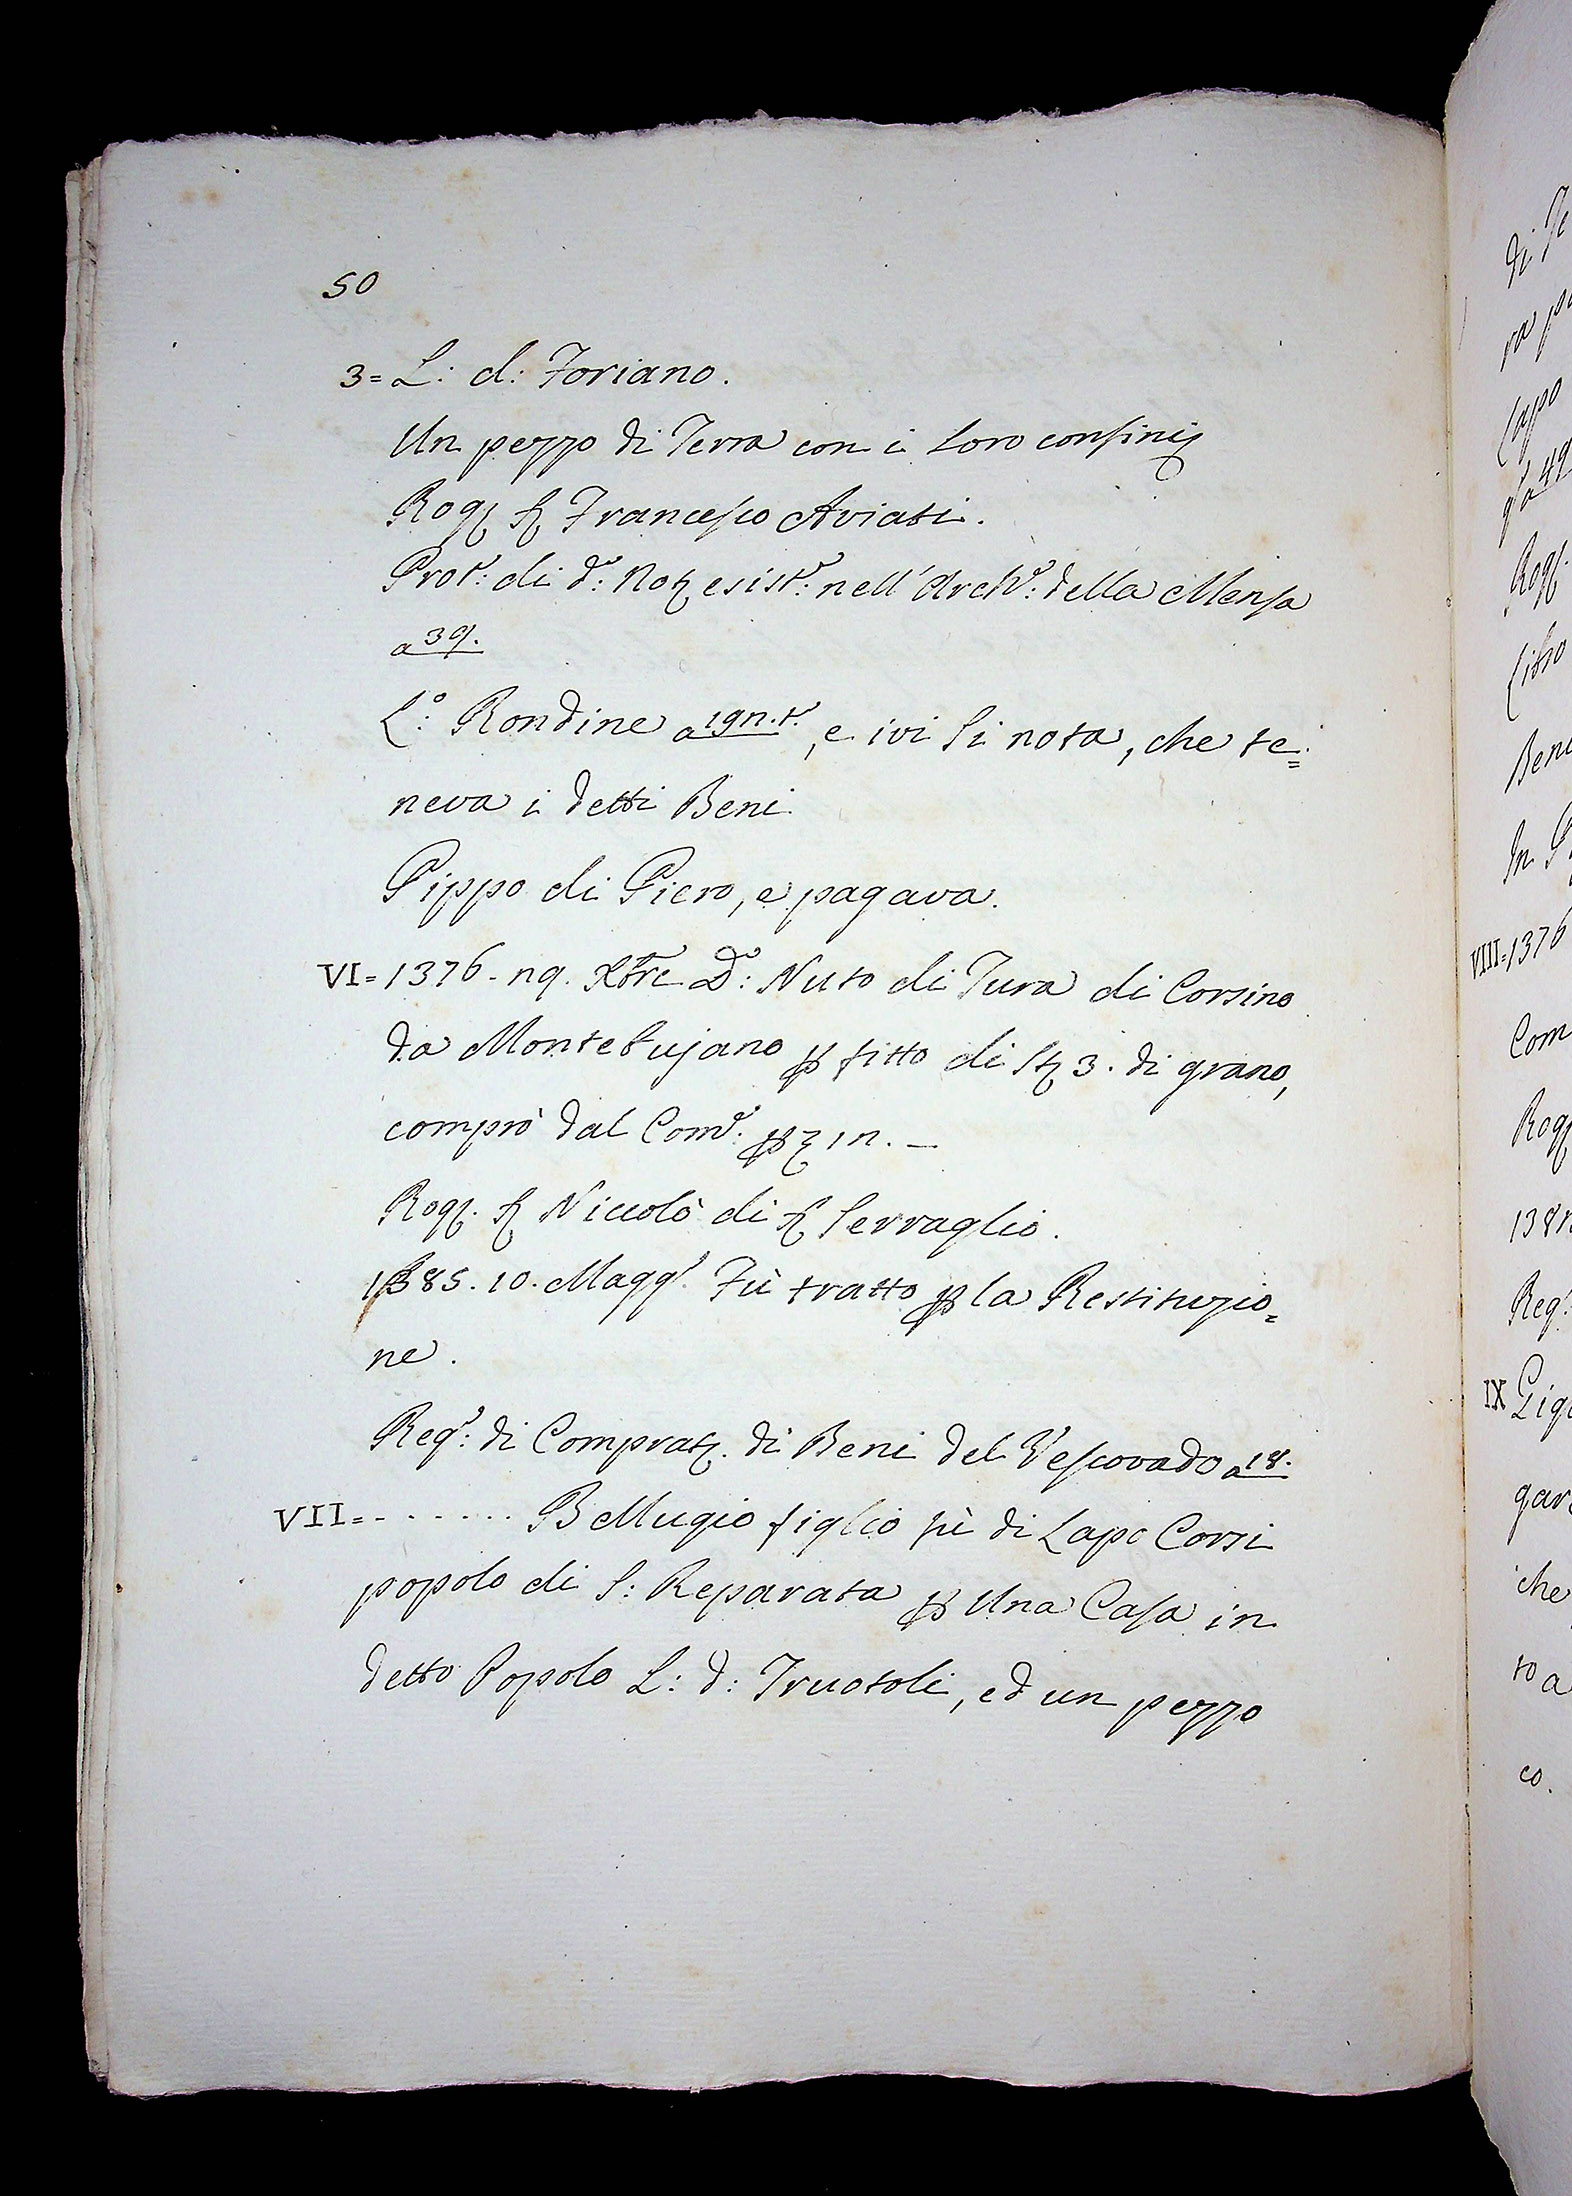 50
3= L: d: Foriano.
Un pezzo di Terra con i loro confini
Rog. Francesco Aviati.
Prot.: di d.o: Not. esist.: nell' Archo.: della Mensa
a 39.
L.o: Rondine a 192.t. , e ivi si nota, che te=
neva i detti Beni
Pippo di Piero, e pagava.
VI= 1376. 29. Xbre D.o: Nuto di Tura di Corsino
da Montebujano p fitto di St. 3. di grano,
comprò dal Com.e: p 12. —
Rog. Niccolò di Serraglio.
1385. 10. Magg.o Fù tratto p la Restituzio=
ne.
Reg.o: di Comprat. di Beni del Vescovado a 18.
VII=- - - - - - Bellugio figlio fù di Lapo Corsi
popolo di S: Reparata p Una Casa in
detto Popolo L: d: Truotoli, ed un pezzo
di
ra
Capo
49
Rog.
Libro
Beni
In
VIII=1376
Com
Rog
138
Reg.
IX
gar
che
to a
co.